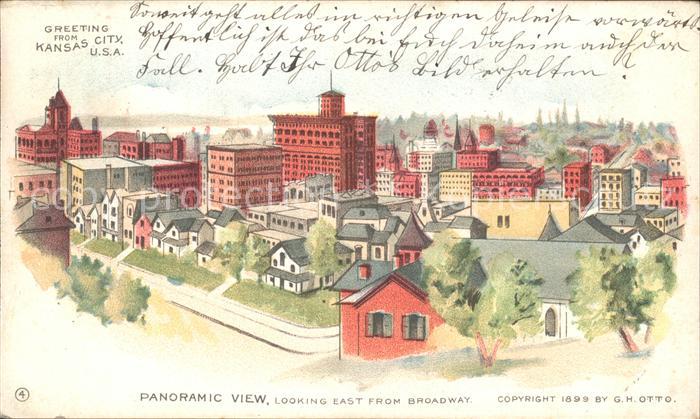 Soweit geht alles im richtigen Geleise vorwärts.
Hoffentlich ist das bei Euch daheim auch der
Fall. Habt Ihr Ottos Bild erhalten?
GREETING
FROM
KANSAS CITY,
U.S.A.
4
PANORAMIC VIEW, LOOKING EAST FROM BROADWAY. COPYRIGHT 1899 BY G.H. OTTO.